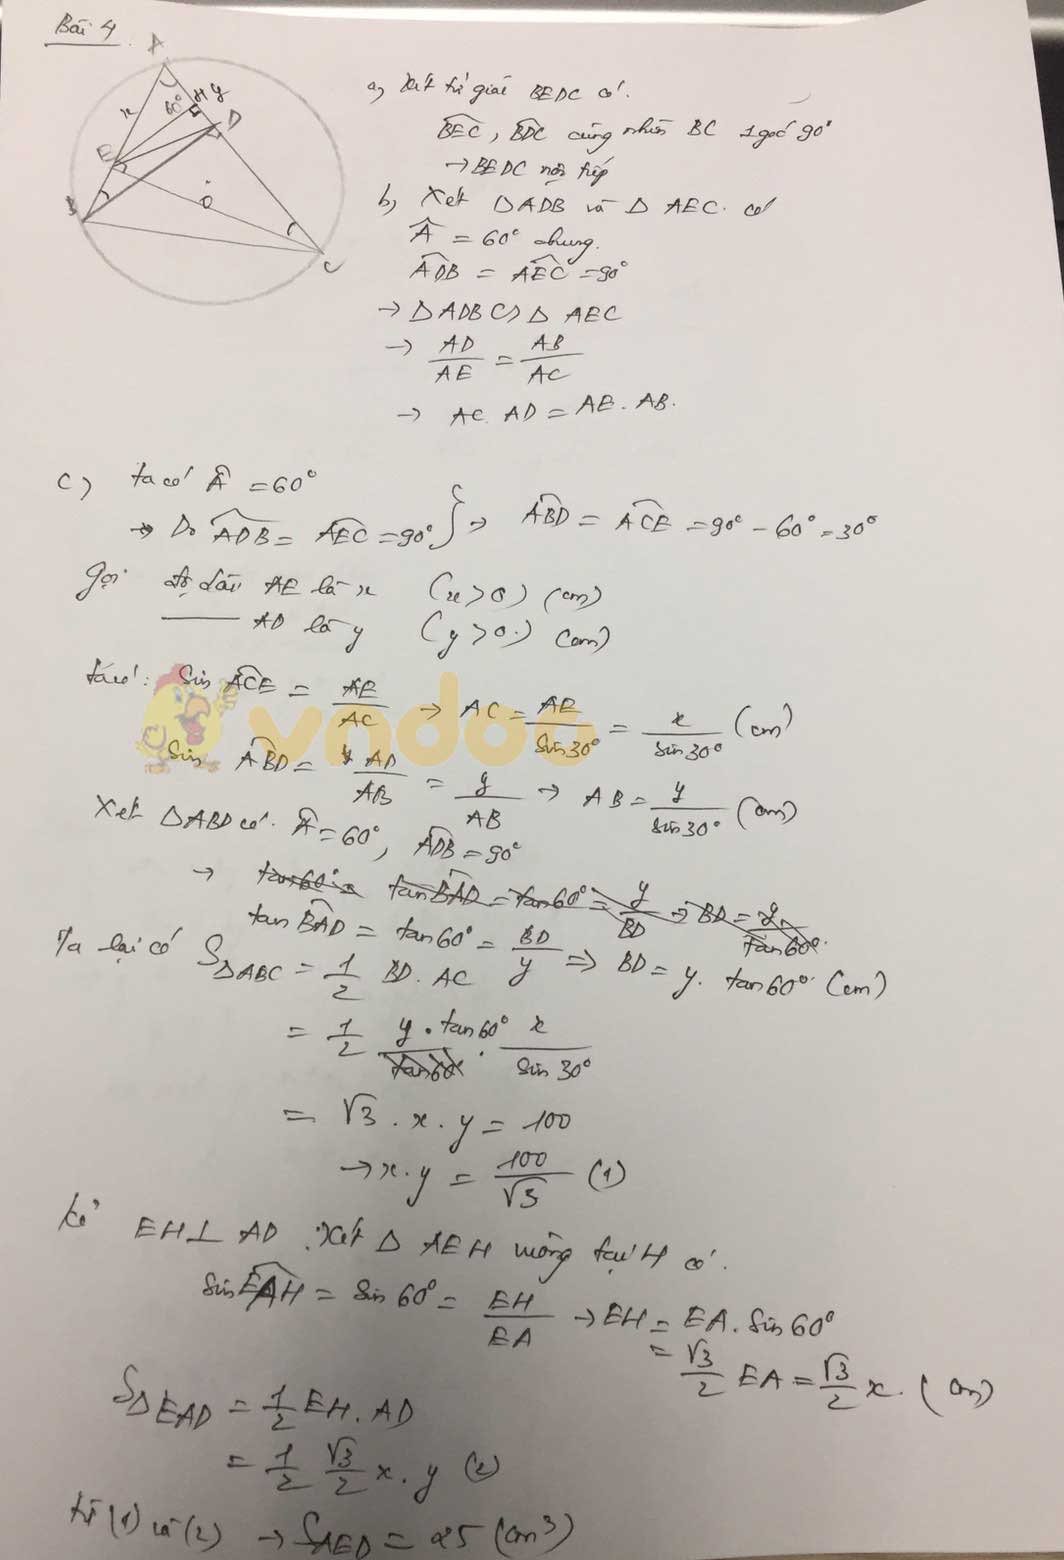 Bài 4
A
x
60°
H
y
D
E
B
O
C
a, Xét tứ giác BEDC có.
BEC, BDC cùng nhìn BC 1 góc 90°
→ BEDC nội tiếp
b, Xét △ADB và △AEC. có
Â = 60° chung.
ADB = AEC = 90°
→ △ADB ∽ △AEC
→ AD/AE = AB/AC
→ AC. AD = AE. AB.
c) ta có Â = 60°
→ Do ADB = AEC = 90° } → ABD = ACE = 90° - 60° = 30°
gọi độ dài AE là x (x>0) (cm)
—— AD là y (y>0.) (cm)
ta có: Sin ACE = AE/AC → AC = AE/Sin30° = x/sin30° (cm)
Sin ABD = AD/AB = y/AB → AB = y/sin30° (cm)
Xét △ABD có. Â = 60°, ADB = 90°
→ tan60° = tanBAD = tan60° = y/BD → BD = y/tan60°
tan BAD = tan60° = BD/y => BD = y. tan60° (cm)
Ta lại có S△ABC = 1/2 BD. AC
= 1/2 y.tan60°/tan60°. x/sin30°
= √3. x. y = 100
→ x.y = 100/√3 (1)
Kẻ EH⊥AD. Xét △AEH vuông tại H có.
sinEAH = Sin60° = EH/EA → EH = EA. Sin60°
= √3/2 EA = √3/2 x. (cm)
S△EAD = 1/2 EH. AD
= 1/2 √3/2 x. y (2)
từ (1) và (2) → SAED = 25 (cm³)
vndoo